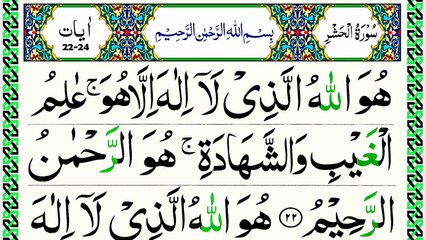 سُوْرَةُ الْحَشْرِ
بِسْمِ اللهِ الرَّحْمٰنِ الرَّحِيْمِ
اٰيات
22-24
هُوَ اللهُ الَّذِىْ لَاۤ اِلٰهَ اِلَّا هُوَ ۚ عٰلِمُ
الْغَيْبِ وَالشَّهَادَةِ ۚ هُوَ الرَّحْمٰنُ
الرَّحِيْمُ ﴿۲۲﴾ هُوَ اللهُ الَّذِىْ لَاۤ اِلٰهَ